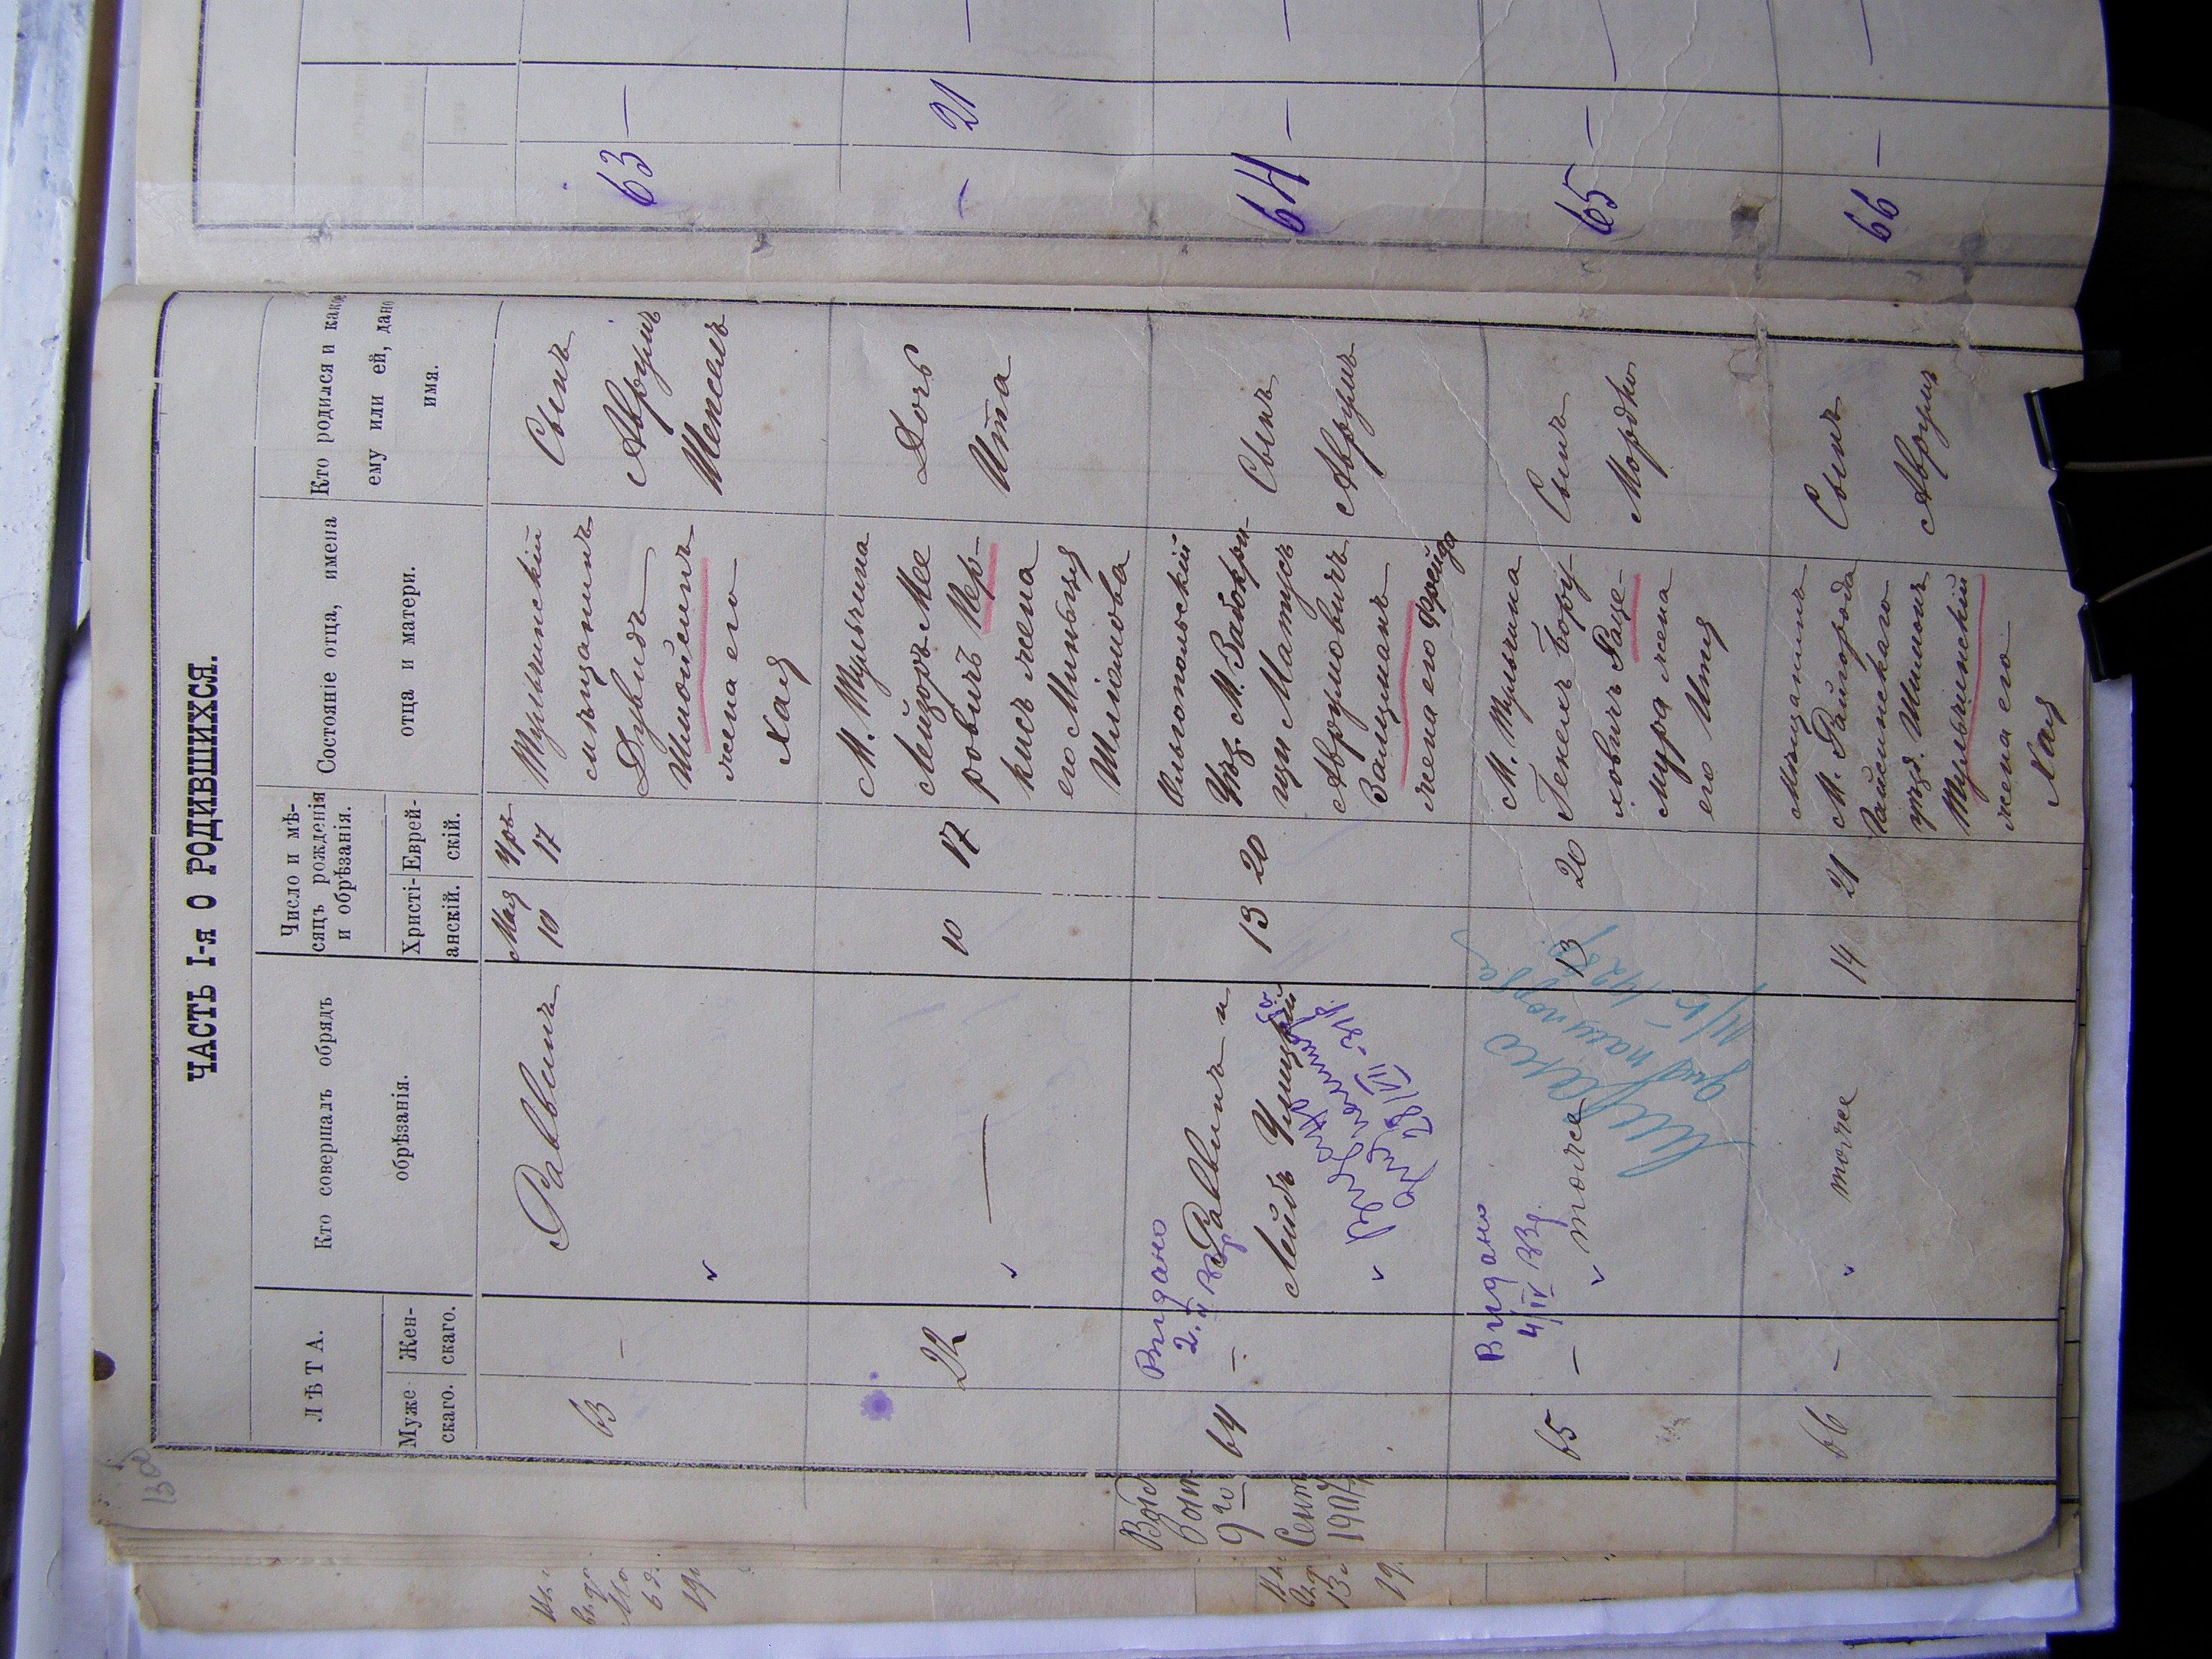 ЧАСТЬ I-я О РОДИВШИХСЯ.
ЛѢТА.
Муже
скаго.
Жен-
скаго.
Кто совершалъ обрядъ
обрѣзанія.
Число и мѣ-
сяцъ рожденія
и обрѣзанія.
Христі-
анскій.
Еврей-
скій.
Состояніе отца, имена
отца и матери.
Кто родился и какое
ему или ей, дано
имя.
63
—
Раввинъ
Мая
10
Іръ
17
Тульчинскій
мѣщанинъ
Дувидъ
Шмойсинъ
жена его
Хая
Сынъ
Аврумъ
Шексель
22
—
10
17
М. Тульчина
Лейзоръ Мее
ровичъ Пер-
кисъ жена
его Миньця
Шліомова
Дочь
Ита
64
—
Выдано
Раввинъ и
Лейбъ Улицкій
28/VII-31 г.
13
20
Ольгопольскій
Уѣз. М. Забокри-
щи Матусъ
Аврумовичъ
Залцманъ
жена его Фрейда
Сынъ
Аврумъ
65
—
Выдано
4/IV 23 г.
тоже
13
20
М. Тульчина
Генехъ Бору
ховичъ Раше-
мура жена
его Итя
Сынъ
Мордко
66
—
тоже
14
21
Мѣщанинъ
М. Райгорода
Гайсинскаго
уѣзд. Шимонъ
Тульчинскій
жена его
Хая
Сынъ
Аврумъ
9го
Сент
1907
63 —
— 21
64 —
65 —
66 —